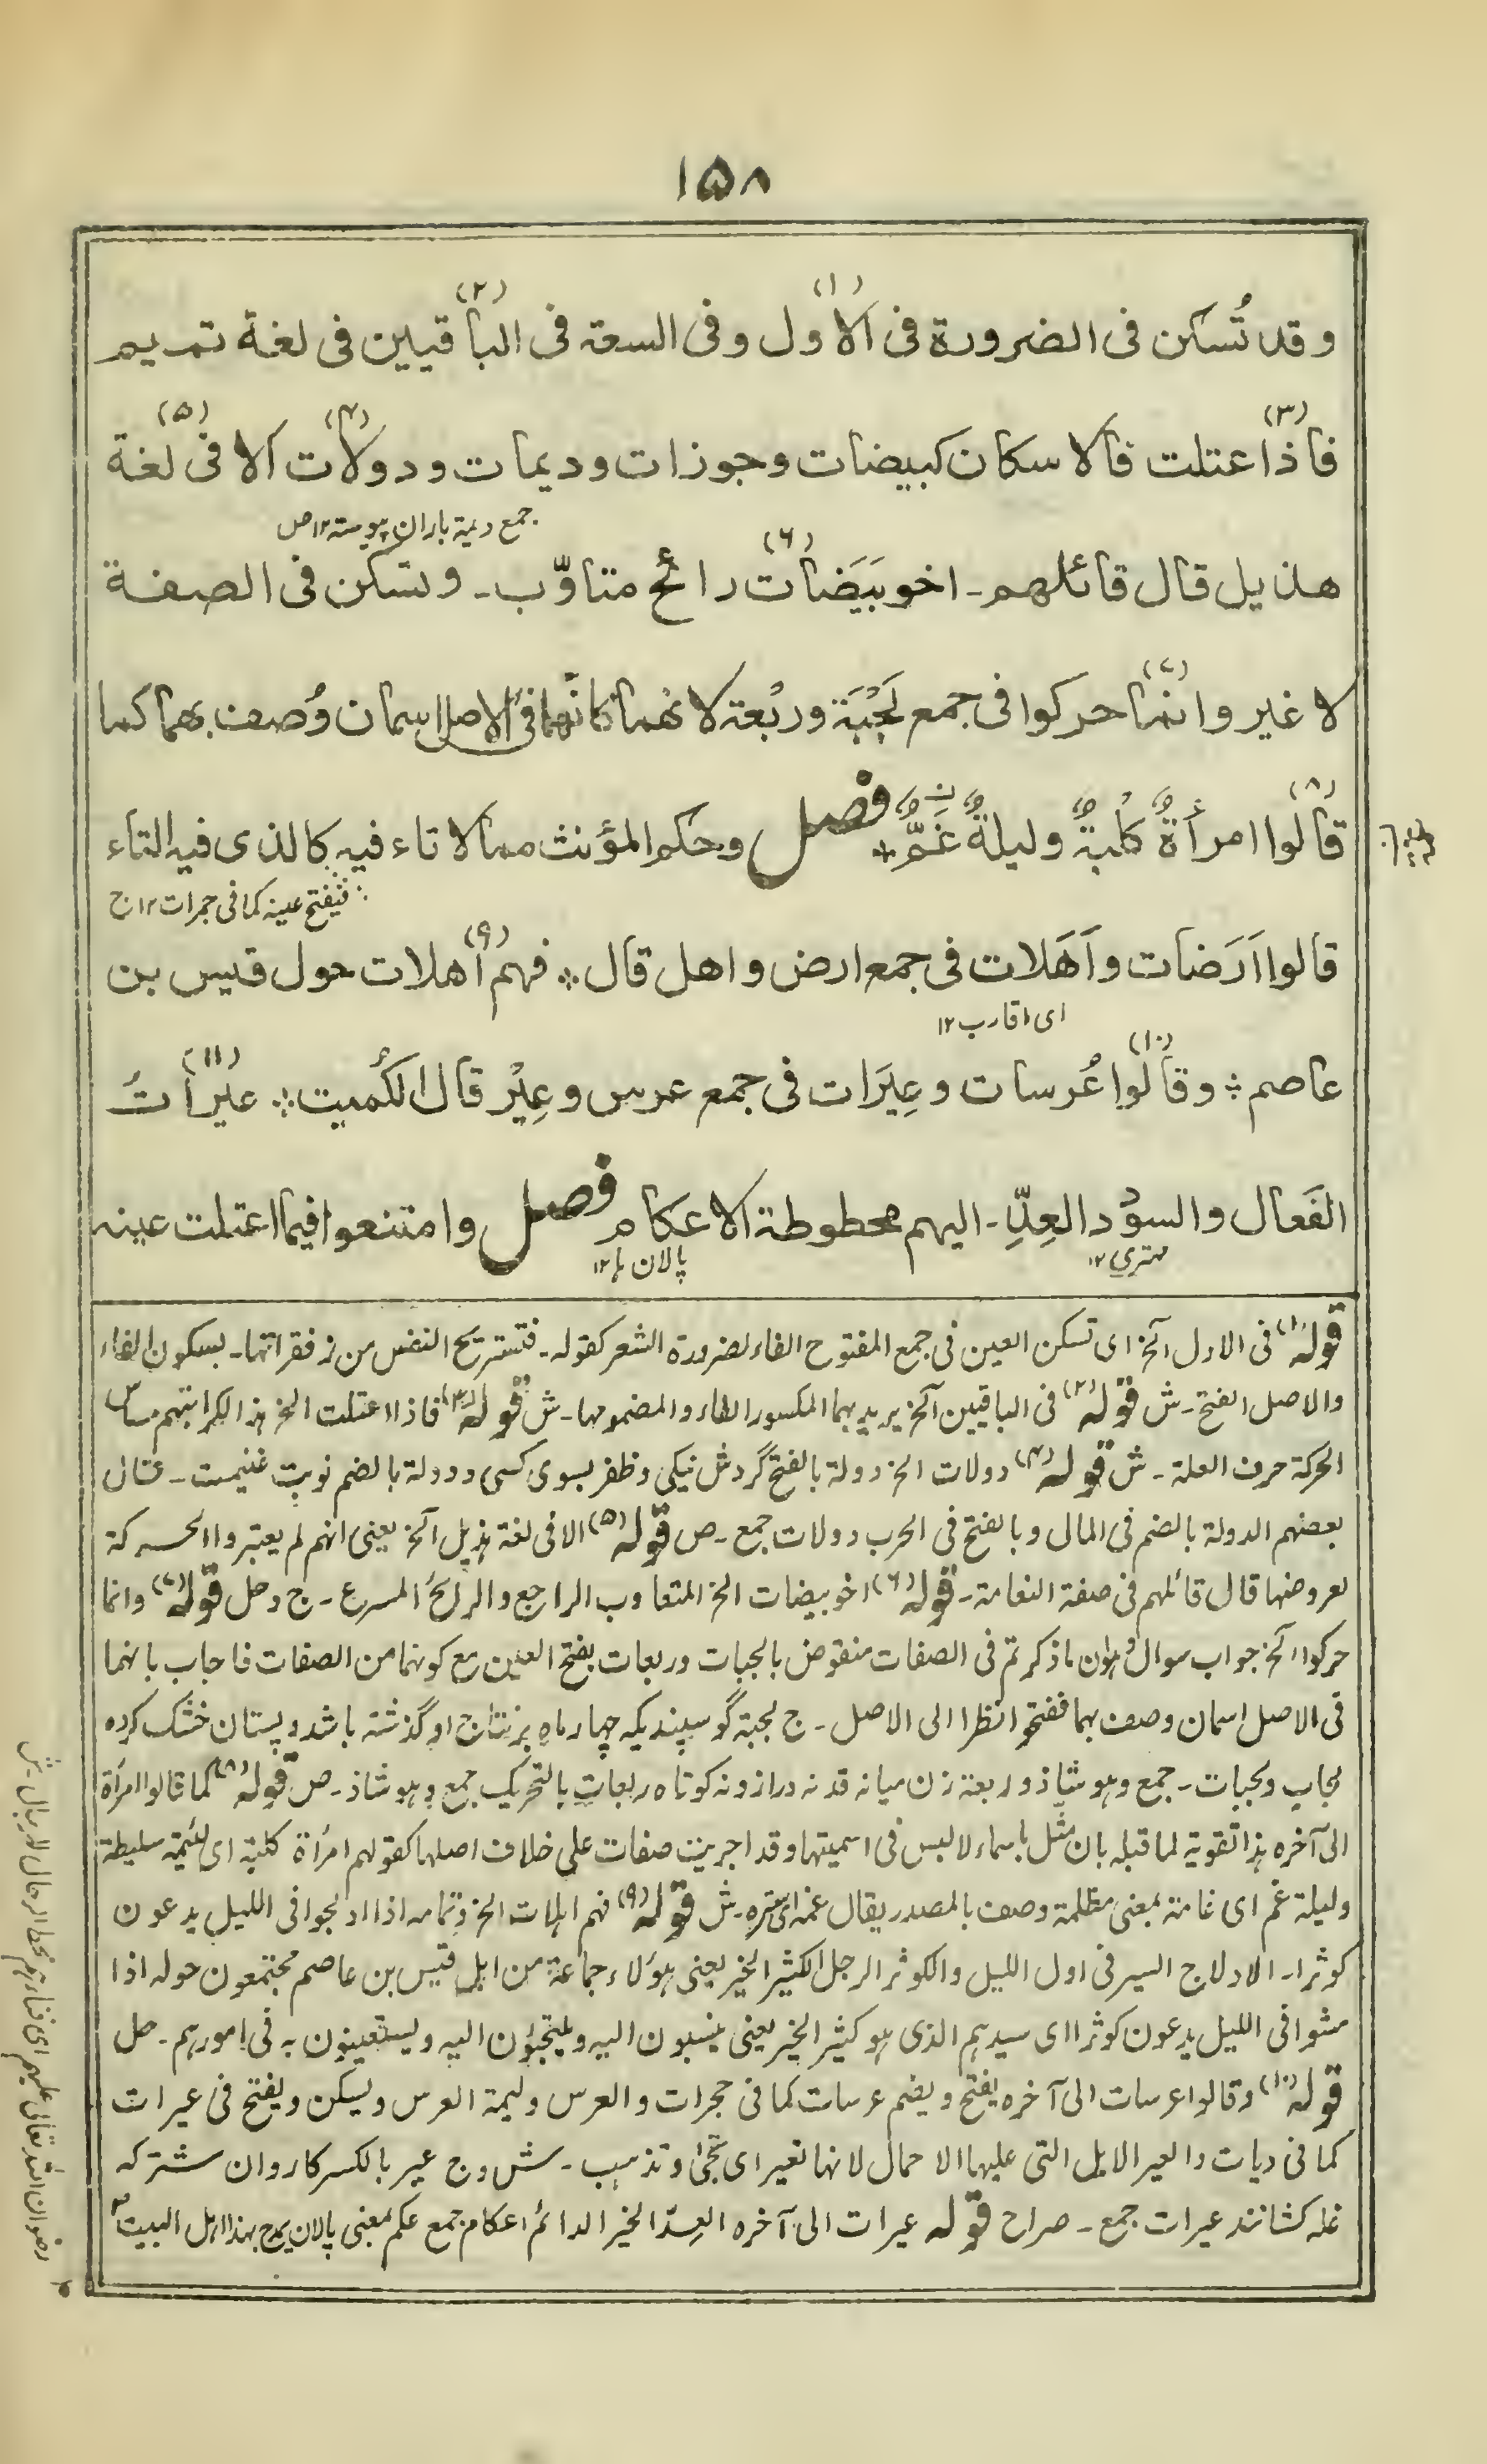 ۱۵۸
وقد تُسكن فى الضرورة فى الاول(۱) وفى السعة فى الباقيين(۲) فى لغة تميم
فاذا(۳) اعتلت فالاسكان كبيضات وجوزات وديمات ودولات(۴) الا فى(۵) لغة
جمع ديمة باران پيوسته ۱۲ ص
هذيل قال قائلهم ـ اخو بَيَضات(۶) رائح متاوّب ـ وتسكن فى الصفة
لا غير وانما(۷) حركوا فى جمع لَجْبَة وربْعة لانهما كانهما فى الاصل اسمان وُصف بهما كما
قالوا(۸) امرأةٌ كلبةٌ وليلةٌ غَمٌّ * فصل وحكم المؤنث مما لا تاء فيه كالذى فيه التاء
فيفتح عينه كما فى جمرات ۱۲ ج
قالوا اَرَضات واَهَلات فى جمع ارض واهل قال ⁂ فهم اهلات(۹) حول قيس بن
اى اقارب ۱۲
عاصم ⁂ وقالوا(۱۰) عُرسات وعِيَرات فى جمع عرس وعِيْر قال الكُميت ⁂ عيرات(۱۱)
الفَعال والسوْدد العِدِّ ـ اليهم محطوطة الاعكام فصل وامتنعوا فيما اعتلت عينه
مہتری ۱۲
پالان ہا ۱۲
قوله(۱) فى الاول آلخ اى تسكن العين فى جمع المفتوح الفاء لضرورة الشعر كقوله ـ فتستريح النفس من زفراتها ـ بسكون الفاء
والاصل الفتح ـ ش قوله(۲) فى الباقيين آلخ يريد بهما المكسور الفاء والمضمومها ـ ش قوله(۳) فاذا اعتلت الخ هذا لكراهتهم
الحركة حرف العلة ـ ش قوله(۴) دولات الخ دولة بالفتح گردش نيكى وظفر بسوى كسى ودولة بالضم نوبت غنيمت ـ قال
بعضهم الدولة بالضم فى المال وبالفتح فى الحرب دولات جمع ـ ص قوله(۵) الا فى لغة هذيل آلخ يعنى انهم لم يعتبروا الحركة
لعروضها قال قائلهم فى صفة النعامة ـ قوله(۶) اخو بيضات الخ المتعاوب الراجع والرائح المسرع ـ ج وحل قوله(۷) وانما
حركوا آلخ جواب سوال وهو ان ما ذكرتم فى الصفات منقوض بالجبات وربعات بفتح العين مع كونهما من الصفات فاجاب بانهما
فى الاصل اسمان وصف بهما ففتحوا نظرا الى الاصل ـ ج لجبة گوسپنديكه چهار ماه بر نتاج او گذشته باشد وپستان خشك كرده
لجاب ولجبات ـ جمع وهو شاذ وربعة زن ميانه قد نه دراز ونه كوتاه ربعات بالتحريك جمع وهو شاذ ـ ص قوله(۸) كما قالوا امرأة
الى آخره هذا تقوية لما قبله بان مثل باسماء لا لبس فى اسميتها وقد اجريت صفات على خلاف اصلها كقولهم امرأة كلبة اى لئيمة سليطة
وليلة غم اى غامة بمعنى مظلمة وصف بالمصدر يقال غمه اى ستره ـ ش قوله(۹) فهم اهلات الخ وتمامه اذا ادلجوا فى الليل يدعون
كوثرا ـ الادلاج السير فى اول الليل والكوثر الرجل الكثير الخير يعنى هؤلاء جماعة من اهل قيس بن عاصم مجتمعون حوله اذا
مشوا فى الليل يدعون كوثرا اى سيدهم الذى هو كثير الخير يعنى ينسبون اليه ويلتجؤن اليه ويستعينون به فى امورهم ـ حل
قوله(۱۰) وقالوا عرسات الى آخره يفتح ويضم عرسات كما فى حجرات والعرس وليمة العرس ويسكن ويفتح فى عيرات
كما فى ديات والعير الابل التى عليها الاحمال لانها تعير اى تجئ وتذهب ـ ش وج عير بالكسر كاروان شتر كه
غله كشانند عيرات جمع ـ صراح قوله عيرات الى آخره العدّ الخير الدائم اعكام جمع عكم بمعنى پالان يمدح بهذا اهل البيت
رضوان الله تعالى عليهم اى فناءهم محط الرحال الآمال ـ ش